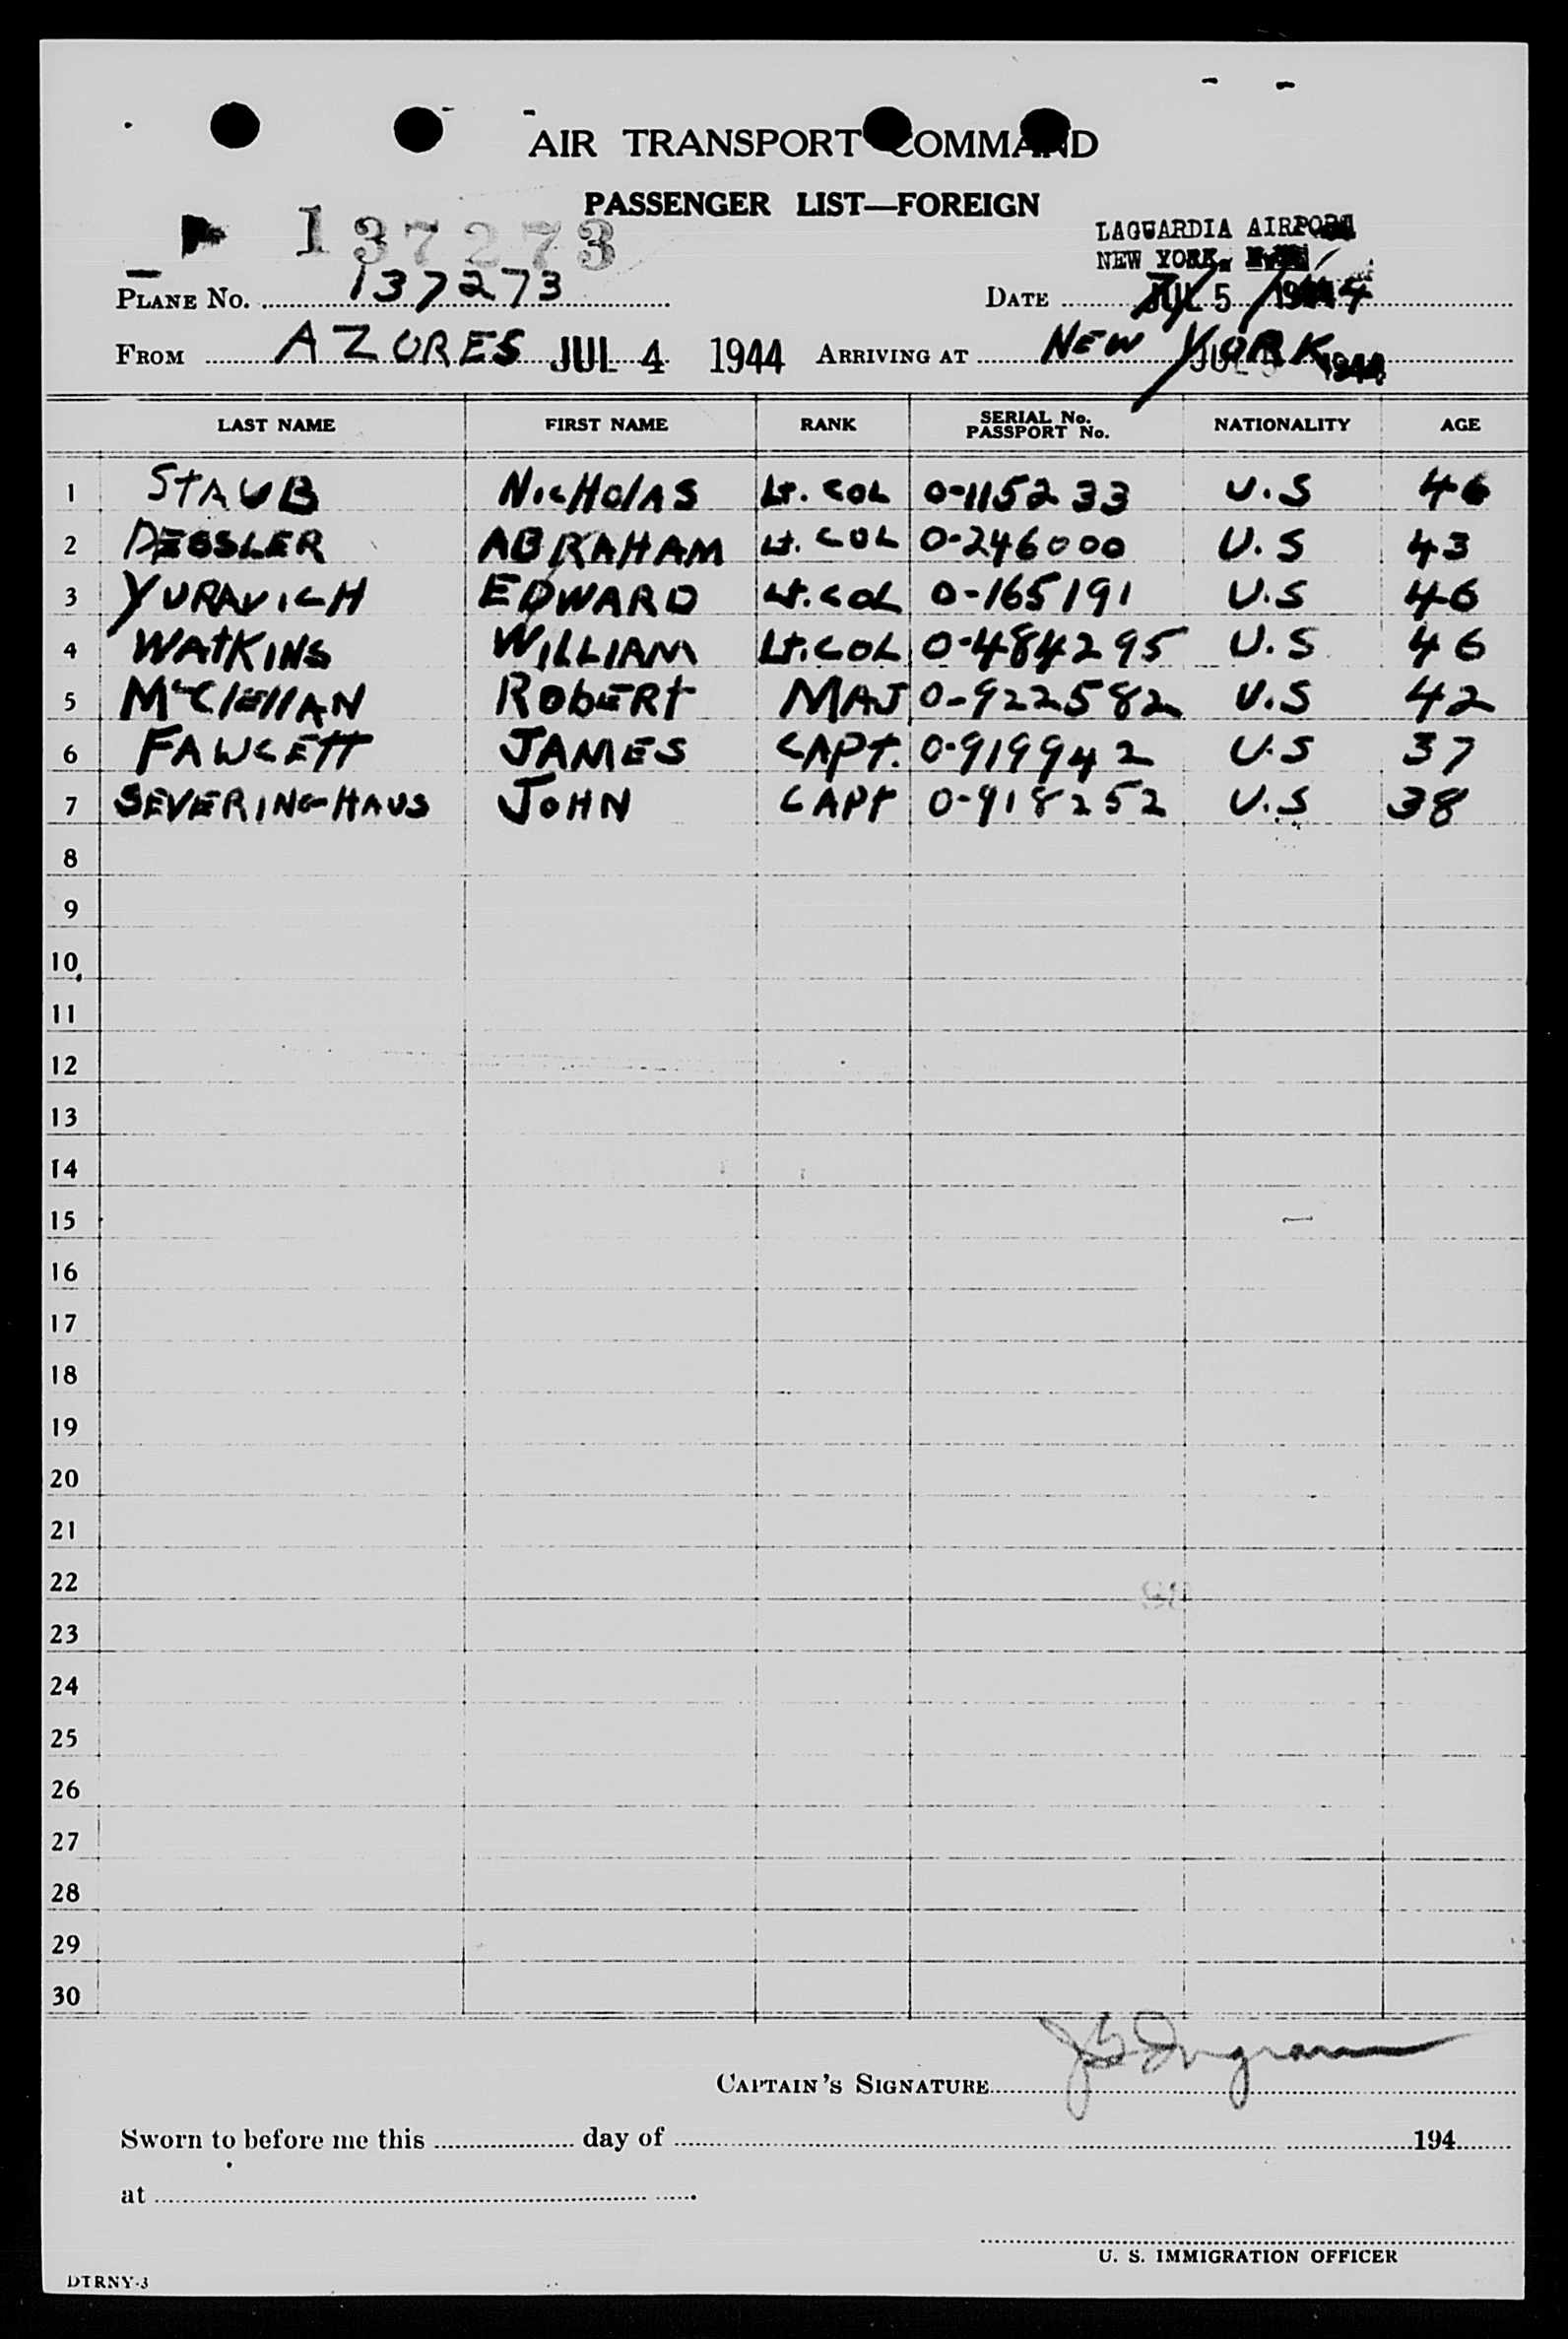 AIR TRANSPORT COMMAND
PASSENGER LIST—FOREIGN
137273
LAGUARDIA AIRPORT
NEW YORK,
PLANE No. 137273 DATE JUL 5 1944
FROM AZORES JUL 4 1944 ARRIVING AT NEW YORK
LAST NAME FIRST NAME RANK SERIAL No. PASSPORT No. NATIONALITY AGE
1 STAUB NICHOLAS Lt. COL 0-1152233 U.S 46
2 DESSLER ABRAHAM Lt. COL 0-246000 U.S 43
3 YURAVICH EDWARD Lt. COL 0-165191 U.S 46
4 WATKINS WILLIAM Lt. COL 0-484295 U.S 46
5 McClellAN RObERt MAJ 0-922582 U.S 42
6 FAWCETT JAMES CAPT. 0-919942 U.S 37
7 SEVERINGHAUS JOHN CAPT 0-918252 U.S 38
8
9
10
11
12
13
14
15
16
17
18
19
20
21
22
23
24
25
26
27
28
29
30
CAPTAIN'S SIGNATURE J Ingram
Sworn to before me this day of 194
at
U. S. IMMIGRATION OFFICER
DTRNY-3